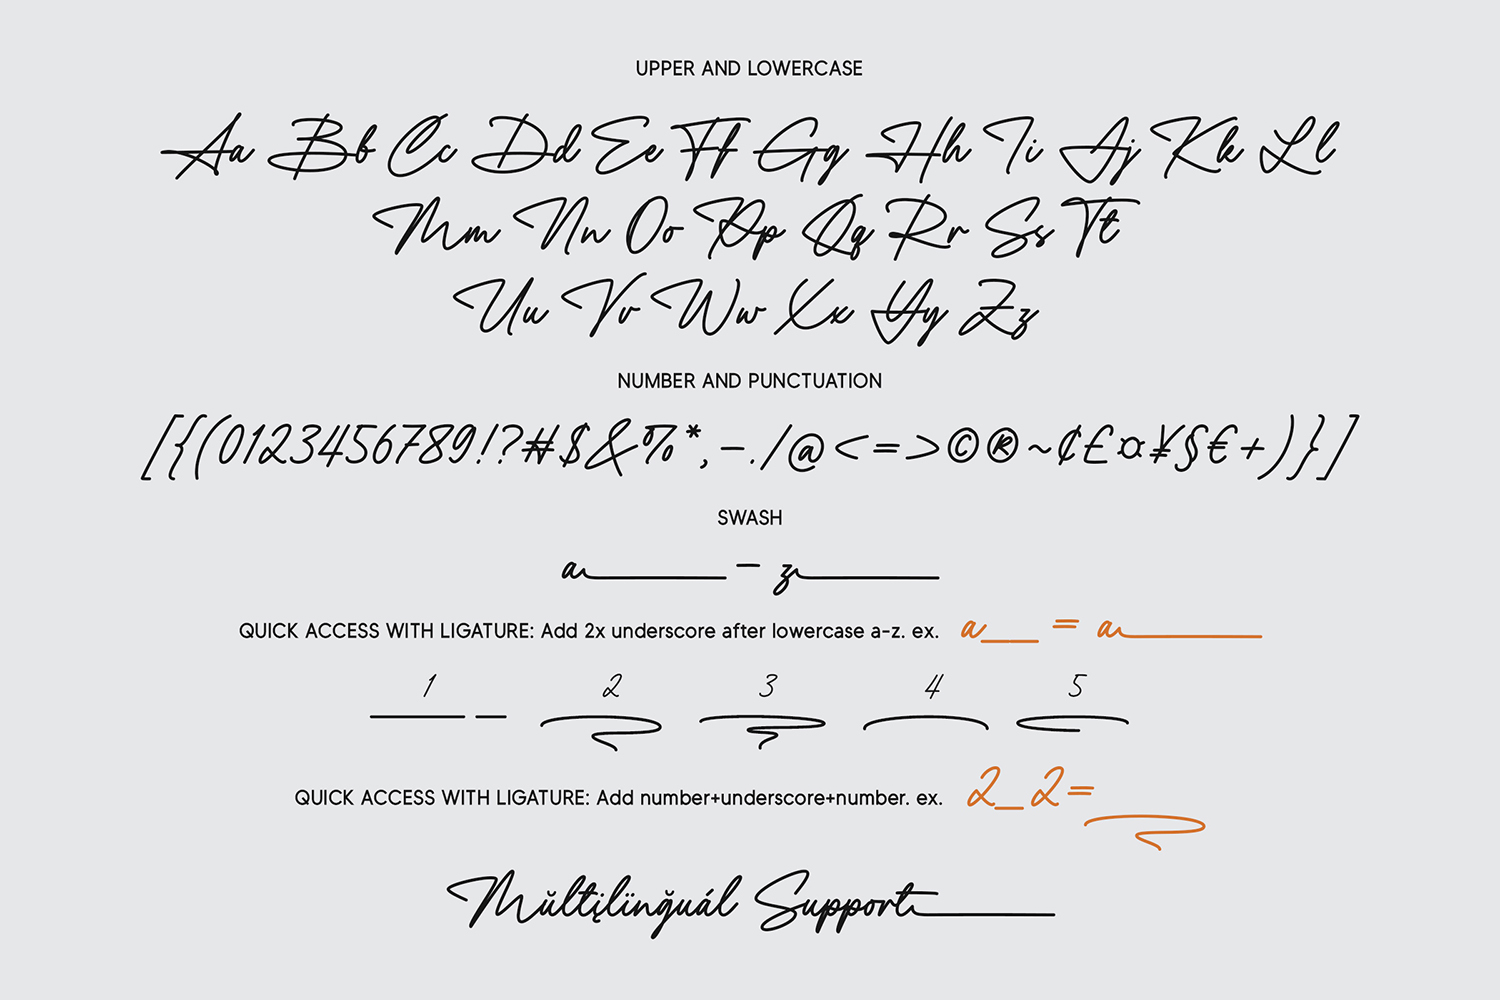 UPPER AND LOWERCASE
Aa Bb Cc Dd Ee Ff Gg Hh Ii Jj Kk Ll
Mm Nn Oo Pp Qq Rr Ss Tt
Uu Vv Ww Xx Yy Zz
NUMBER AND PUNCTUATION
[{(0123456789!?#$&%*,-./@<=>©®~¢£¤¥§€+)}]
SWASH
a__ – z__
QUICK ACCESS WITH LIGATURE: Add 2x underscore after lowercase a-z. ex. a__ = a__
1 2 3 4 5
QUICK ACCESS WITH LIGATURE: Add number+underscore+number. ex. 2_2=
Mŭltįlïnğuál Support